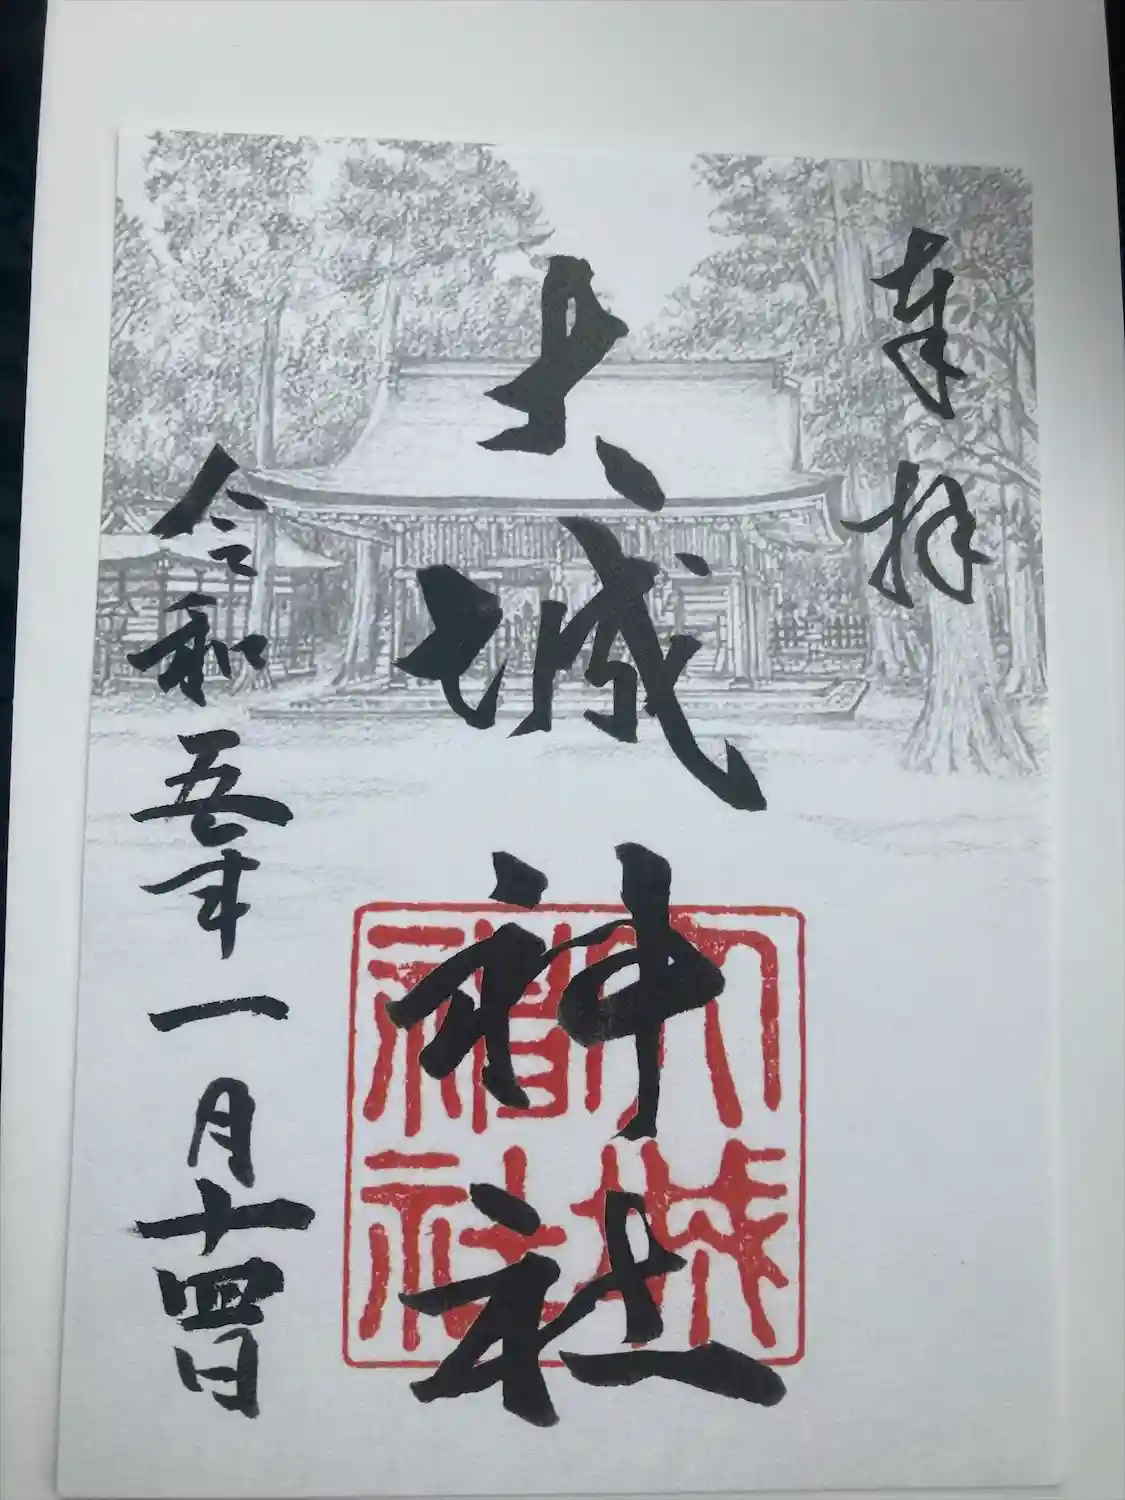 奉拝
大城神社
大城神社
令和五年一月十四日